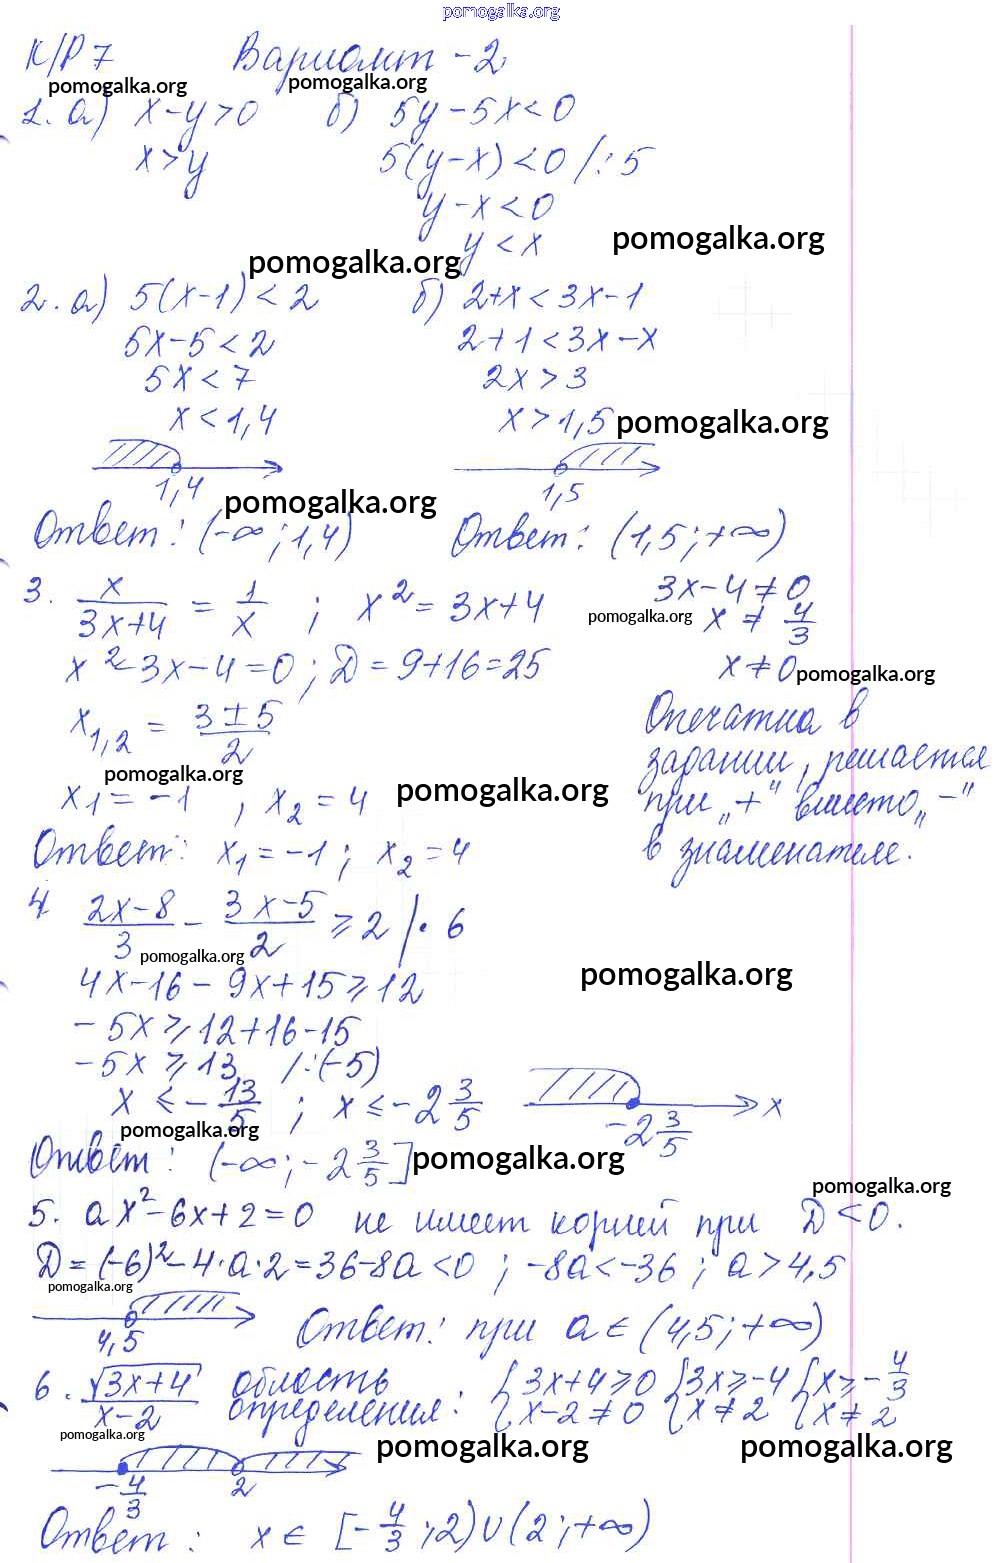 pomogalka.org
К/Р 7 Вариант - 2.
pomogalka.org pomogalka.org
1. а) x-y>0 б) 5y-5x<0
x>y 5(y-x)<0 /:5
y-x<0
pomogalka.org
y<x
pomogalka.org
2. а) 5(x-1)<2 б) 2+x<3x-1
5x-5<2 2+1<3x-x
5x<7 2x>3
x<1,4 x>1,5 pomogalka.org
1,4 1,5
pomogalka.org
Ответ: (-∞; 1,4) Ответ: (1,5; +∞)
3. x/(3x+4) = 1/x ; x²=3x+4 3x-4≠0
pomogalka.org x≠4/3
x²-3x-4=0; D=9+16=25 x≠0 pomogalka.org
x1,2 = (3±5)/2 Опечатка в
pomogalka.org задании, решается
x1=-1 , x2=4 pomogalka.org при „+" вместо „-"
Ответ: x1=-1; x2=4 в знаменателе.
4 (2x-8)/3 - (3x-5)/2 ≥ 2 /· 6
pomogalka.org
pomogalka.org
4x-16-9x+15≥12
-5x≥12+16-15
-5x≥13 /:(-5)
x≤-13/5 ; x≤-2 3/5 x
pomogalka.org -2 3/5
Ответ: (-∞; -2 3/5] pomogalka.org
pomogalka.org
5. ax²-6x+2=0 не имеет корней при D<0.
D=(-6)²-4·a·2=36-8a<0 ; -8a<-36 ; a>4,5
pomogalka.org
4,5 Ответ: при a∈(4,5; +∞)
6. √(3x+4)/(x-2) область определения: {3x+4≥0 {3x≥-4 {x≥-4/3
{x-2≠0 {x≠2 {x≠2
pomogalka.org pomogalka.org pomogalka.org
-4/3 2
Ответ: x∈[-4/3; 2)∪(2; +∞)